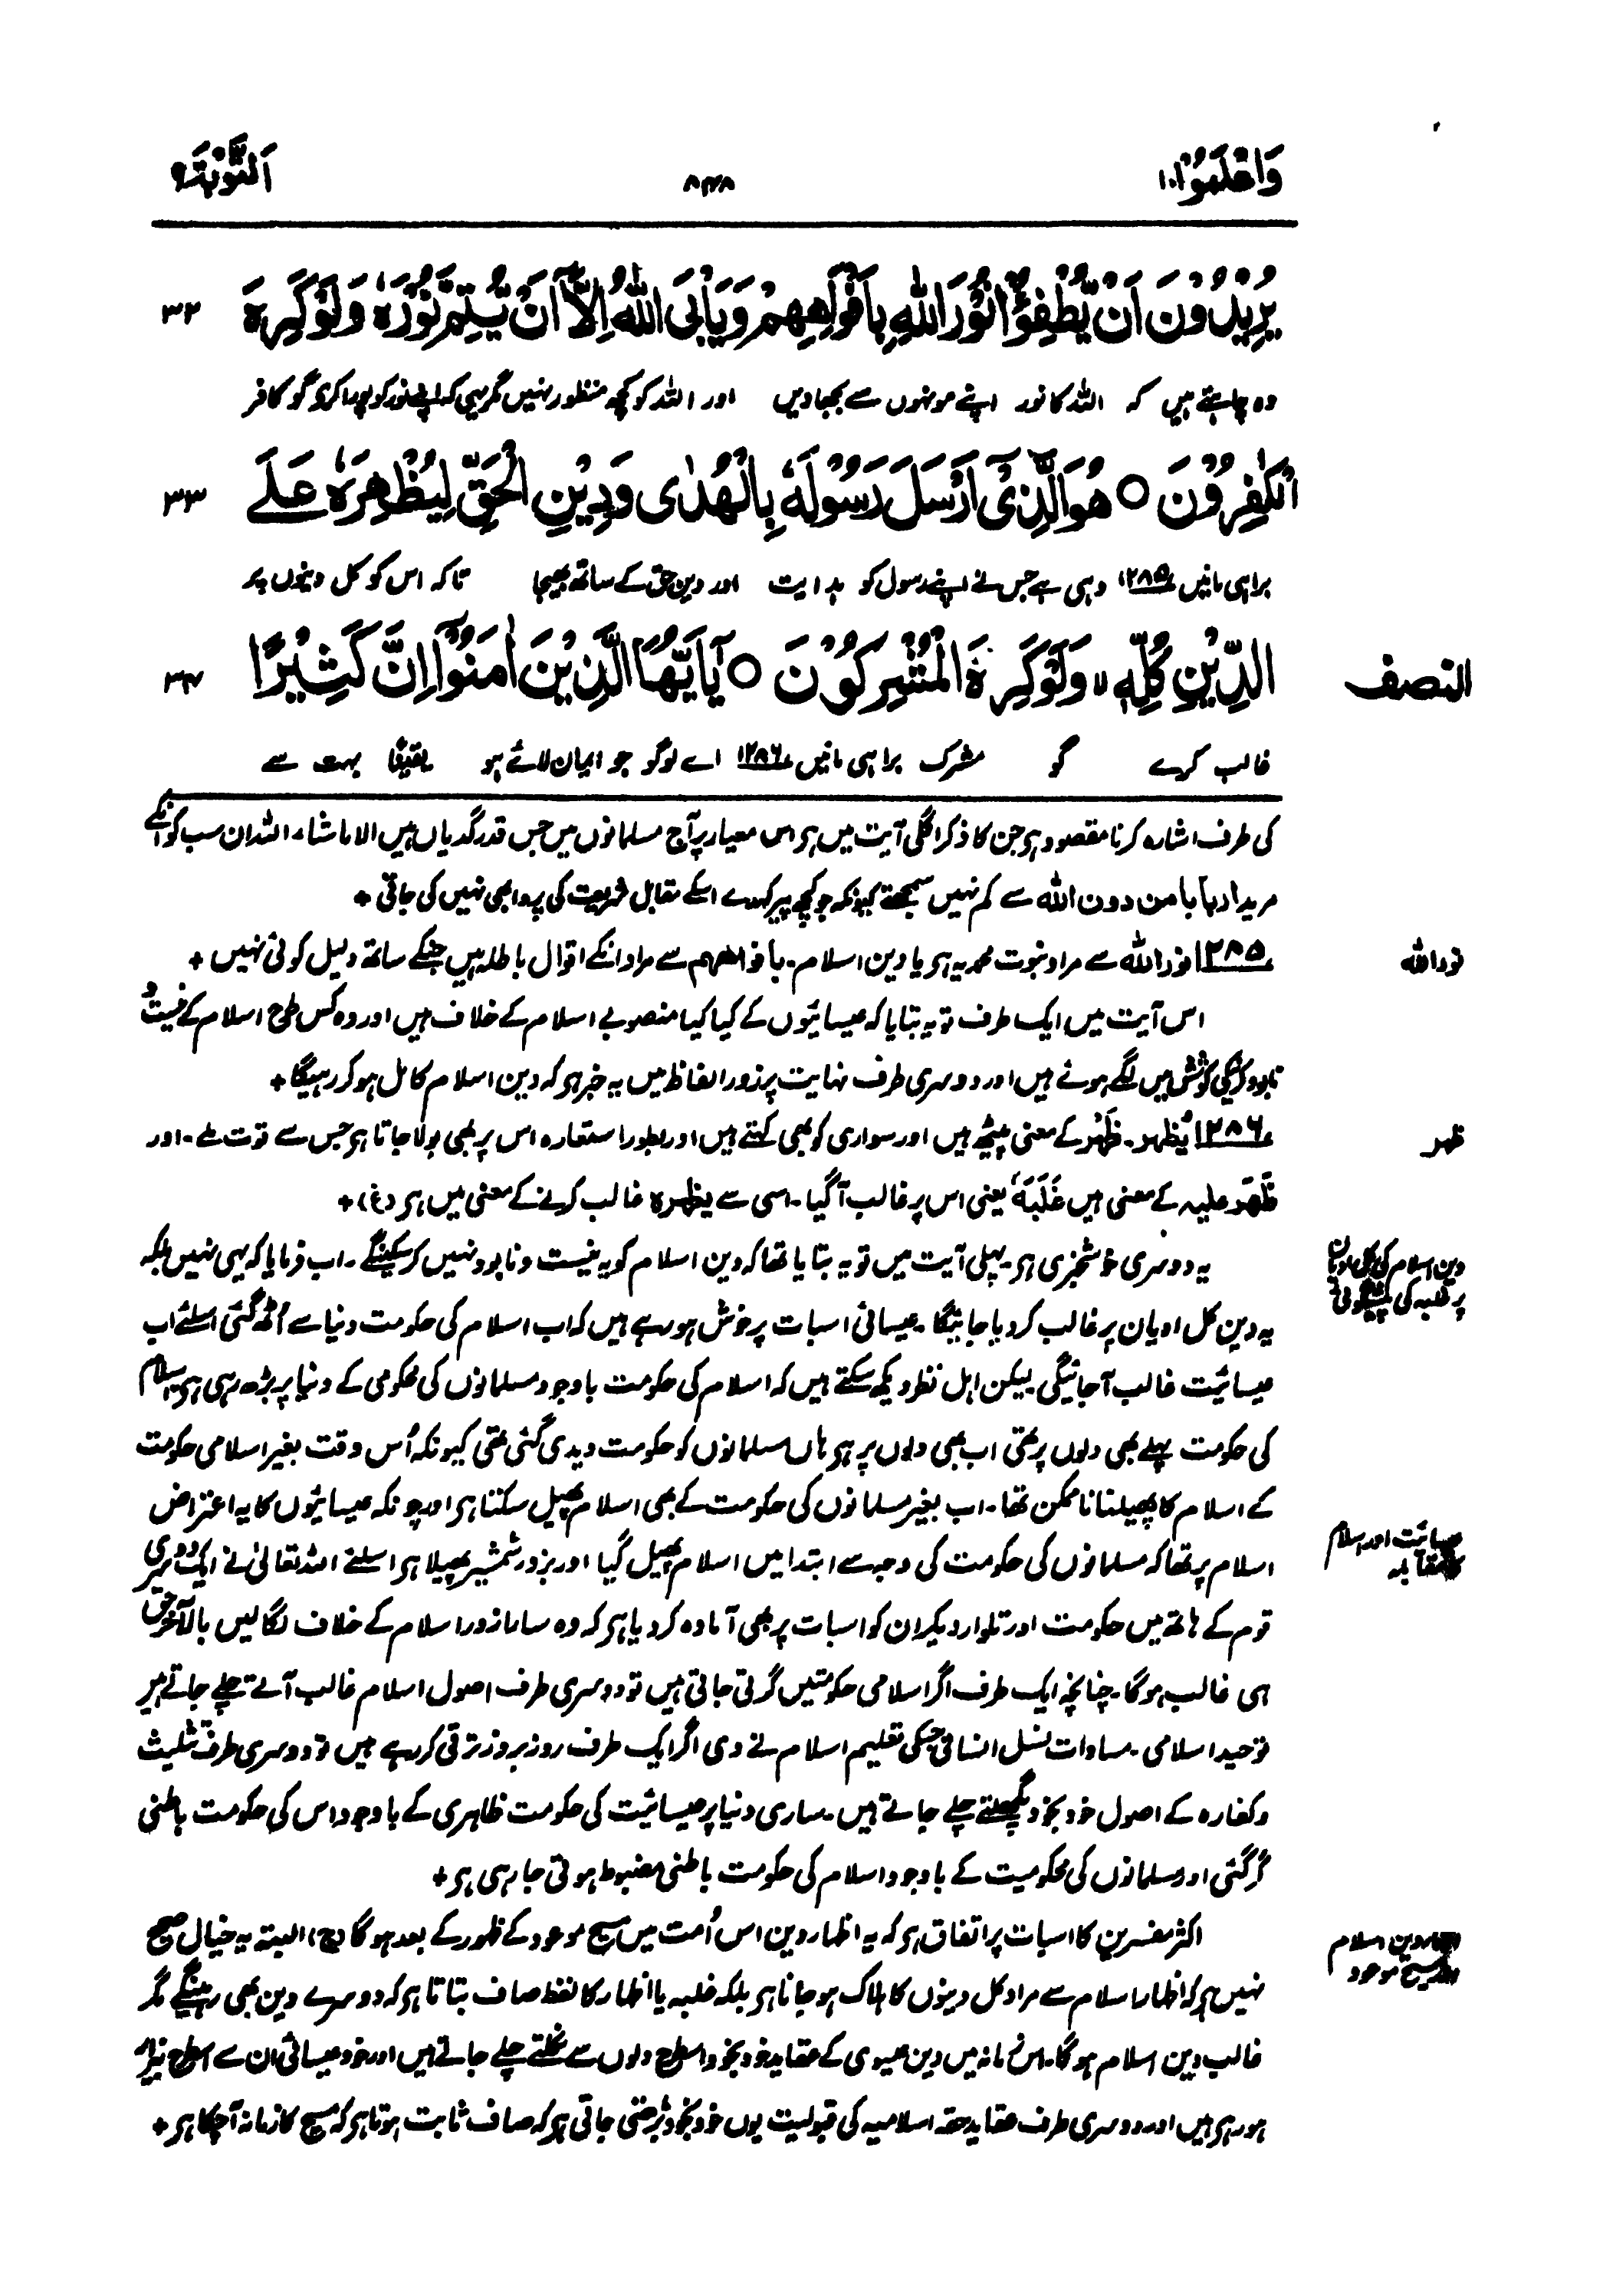 وَاعْلَمُوْٓا۱۰
۸۴۸
اَلتَّوْبَة۹
يُرِيْدُوْنَ اَنْ يُّطْفِـُٔوْا نُوْرَ اللّٰهِ بِاَفْوَاهِهِمْ وَيَاْبَى اللّٰهُ اِلَّآ اَنْ يُّتِمَّ نُوْرَهٗ وَلَوْ كَرِهَ ۳۲
وہ چاہتے ہیں کہ اللہ کا نور اپنے مونہوں سے بجھا دیں اور اللہ کو کچھ منظور نہیں مگر یہی کہ اپنے نور کو پورا کرے گو کافر
الْكٰفِرُوْنَ ○ هُوَ الَّذِیْٓ اَرْسَلَ رَسُوْلَهٗ بِالْهُدٰى وَدِيْنِ الْحَقِّ لِيُظْهِرَهٗ عَلَے ۳۳
برا ہی مانیں ۱۲۸۵ وہی ہے جس نے اپنے رسول کو ہدایت اور دین حق کے ساتھ بھیجا تاکہ اس کو کل دینوں پر
النصف
الدِّيْنِ كُلِّهٖ ۙ وَلَوْ كَرِهَ الْمُشْرِكُوْنَ ○ يٰٓاَيُّهَا الَّذِيْنَ اٰمَنُوْٓا اِنَّ كَثِيْرًا ۳۴
غالب کرے گو مشرک برا ہی مانیں ۱۲۸۶ اے لوگو جو ایمان لائے ہو یقیناً بہت سے
کی طرف اشارہ کرنا مقصود ہے جن کا ذکر اگلی آیت میں ہے اس معیار پر آج مسلمانوں میں جس قدر گدیاں ہیں الا ماشاء اللہ ان سب کو انکے
مرید اربابا من دون اللہ سے کم نہیں سمجھتے کیونکہ جو کچھ پیر کہدے اسکے مقابل شریعت کی پروا بھی نہیں کی جاتی +
نور اللہ
۱۲۸۵ نور اللہ سے مراد نبوت محمدیہ ہے یا دین اسلام۔ بافواھھم سے مراد انکے اقوال باطلہ ہیں جنکے ساتھ دلیل کوئی نہیں +
اس آیت میں ایک طرف تو یہ بتایا کہ عیسائیوں کے کیا کیا منصوبے اسلام کے خلاف ہیں اور وہ کس طرح اسلام کے نیست و
نابود کرنیکی کوشش میں لگے ہوئے ہیں اور دوسری طرف نہایت پرزور الفاظ میں یہ خبر ہے کہ دین اسلام کامل ہو کر رہیگا +
ظہر
۱۲۸۶ یُظہر۔ ظَھْر کے معنی پیٹھ ہیں اور سواری کو بھی کہتے ہیں اور بطور استعارہ اس پر بھی بولا جاتا ہے جس سے قوت ملے۔ اور
ظَھَر علیہ کے معنی ہیں غَلَبَہٗ یعنی اس پر غالب آ گیا۔ اسی سے یظھرہ غالب کرنے کے معنی میں ہے (غ) +
دین اسلام کی کل ادیان
پر غلبہ کی پیشگوئی
یہ دوسری خوشخبری ہے۔ پہلی آیت میں تو یہ بتایا تھا کہ دین اسلام کو یہ نیست و نابود نہیں کر سکینگے۔ اب فرمایا کہ یہی نہیں بلکہ
یہ دین کل ادیان پر غالب کر دیا جائیگا۔ عیسائی اسبات پر خوش ہو رہے ہیں کہ اب اسلام کی حکومت دنیا سے اٹھ گئی اسلئے اب
عیسائیت غالب آ جائیگی لیکن اہل نظر دیکھ سکتے ہیں کہ اسلام کی حکومت باوجود مسلمانوں کی محکومی کے دنیا پر بڑھ رہی ہے۔ اسلام
کی حکومت پہلے بھی دلوں پر تھی اب بھی دلوں پر ہے ہاں مسلمانوں کو حکومت دیدی گئی تھی کیونکہ اُس وقت بغیر اسلامی حکومت
کے اسلام کا پھیلنا ناممکن تھا۔ اب بغیر مسلمانوں کی حکومت کے بھی اسلام پھیل سکتا ہے اور چونکہ عیسائیوں کا یہ اعتراض
عیسائیت اور اسلام
کا مقابلہ
اسلام پر تھا کہ مسلمانوں کی حکومت کی وجہ سے ابتدا میں اسلام پھیل گیا اور بزور شمشیر پھیلا ہے اسلئے اللہ تعالیٰ نے ایک دوسری
قوم کے ہاتھ میں حکومت اور تلوار دیکر ان کو اسبات پر بھی آمادہ کر دیا ہے کہ وہ سارا زور اسلام کے خلاف لگا لیں بالآخر حق
ہی غالب ہوگا۔ چنانچہ ایک طرف اگر اسلامی حکومتیں گرتی جاتی ہیں تو دوسری طرف اصول اسلام غالب آتے چلے جاتے ہیں
توحید اسلامی۔ مساوات نسل انسانی جسکی تعلیم اسلام نے دی اگر ایک طرف روز بروز ترقی کر رہے ہیں تو دوسری طرف تثلیث
و کفارہ کے اصول خود بخود پگھلتے چلے جاتے ہیں۔ ساری دنیا پر عیسائیت کی حکومت ظاہری کے باوجود اس کی حکومت باطنی
گر گئی اور مسلمانوں کی محکومیت کے باوجود اسلام کی حکومت باطنی مضبوط ہوتی جا رہی ہے +
دین اسلام
مسیح موعود
اکثر مفسرین کا اسبات پر اتفاق ہے کہ یہ اظہار دین اس اُمت میں مسیح موعود کے ظہور کے بعد ہوگا (ج) البتہ یہ خیال صحیح
نہیں ہے کہ اظہار اسلام سے مراد کل دینوں کا ہلاک ہو جانا ہے بلکہ غلبہ یا اظہار کا لفظ صاف بتاتا ہے کہ دوسرے دین بھی رہینگے مگر
غالب دین اسلام ہوگا۔ اس زمانہ میں دین عیسوی کے عقاید خود بخود اسطرح دلوں سے نکلتے چلے جاتے ہیں اور خود عیسائی ان سے اسطرح بیزار
ہو رہے ہیں اور دوسری طرف عقاید حقہ اسلامیہ کی قبولیت یوں خود بخود بڑھتی جاتی ہے کہ صاف ثابت ہوتا ہے کہ مسیح کا زمانہ آ چکا ہے +